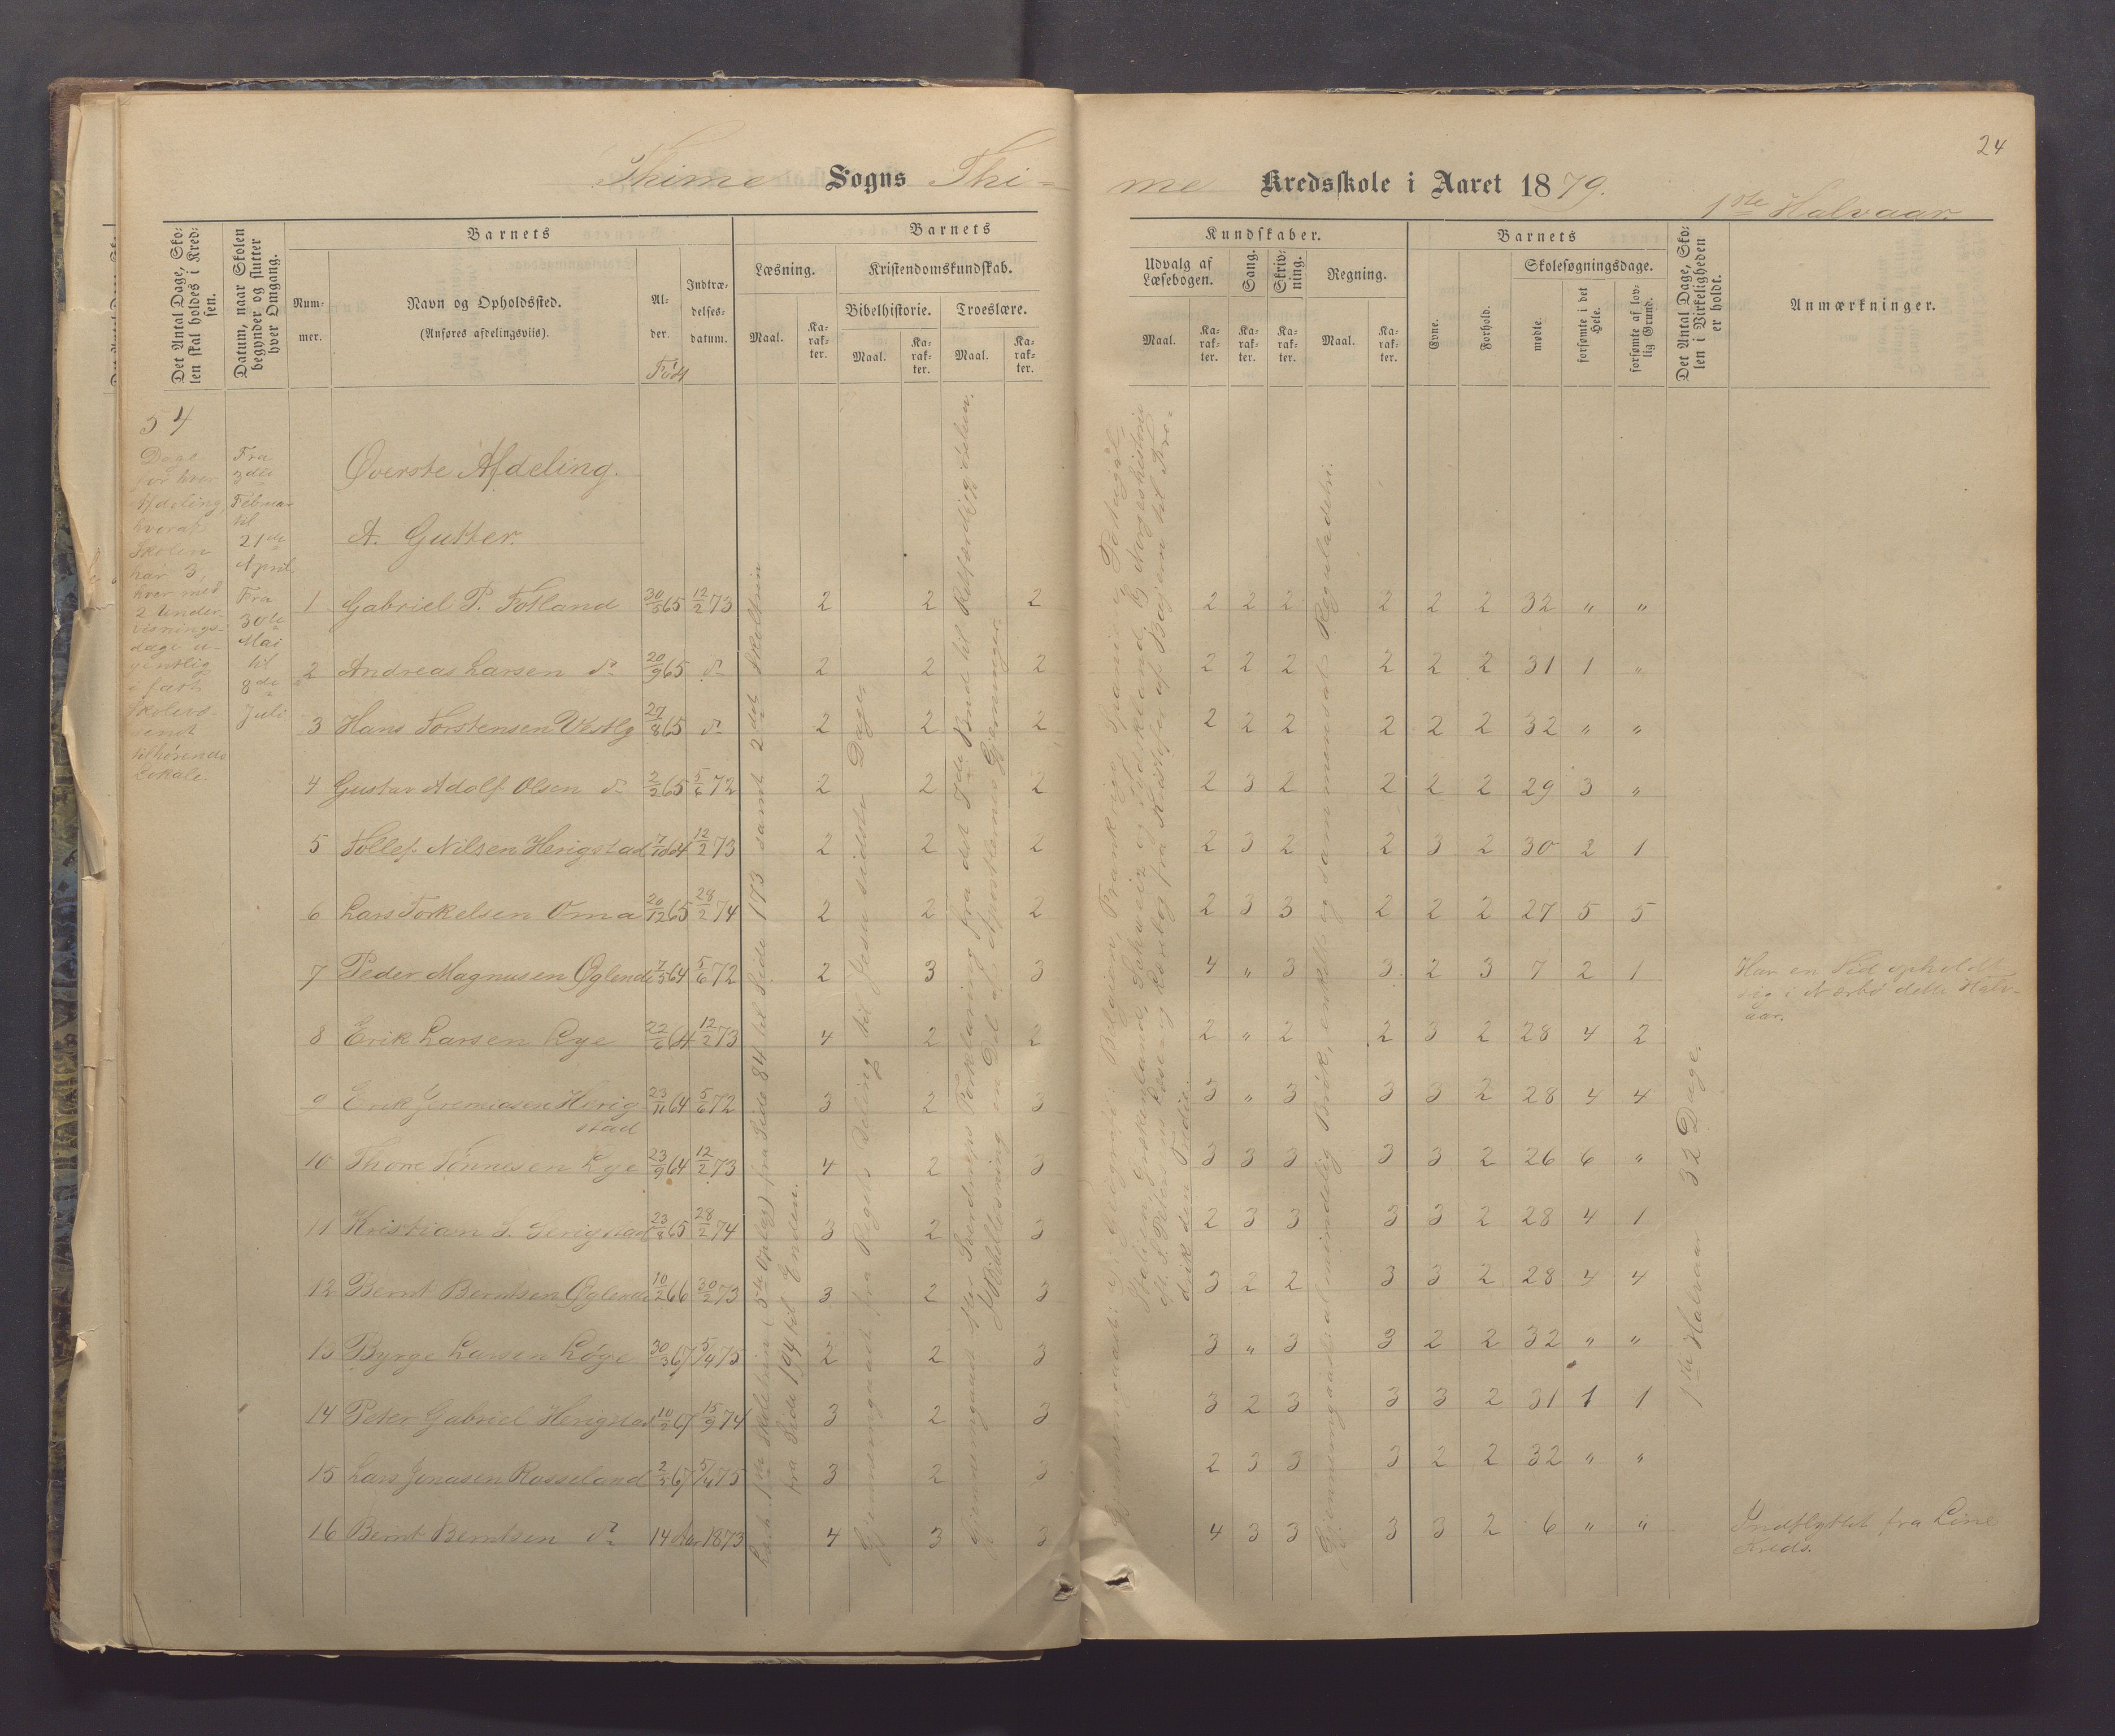 24
Thime Sogns Thime Kredsskole i Aaret 1879.
1ste Halvaar.
Det Antal Dage, Skolen skal holdes i Kredsen.
Datum, naar Skolen begynder og slutter hver Omgang.
Barnets
Nummer.
Navn og Opholdssted.
(Anføres afdelingsvis).
Alder.
Født
Indtrædelsesdatum.
Barnets
Læsning.
Maal.
Karakter.
Kristendomskundskab.
Bibelhistorie.
Maal.
Karakter.
Troeslære.
Maal.
Karakter.
Kundskaber.
Udvalg af Læsebogen.
Maal.
Karakter.
Sang.
Karakter.
Skrivning.
Karakter.
Regning.
Maal.
Karakter.
Barnets
Evne.
Forhold.
Skolesøgningsdage.
mødte.
forsømte i det Hele.
forsømte af lovlig Grund.
Det Antal Dage, Skolen i Virkeligheden er holdt.
Anmærkninger.
54
Dage
for hver
Afdeling,
hvoraf
Skolen
har 3,
hver med
2 Under-
visnings-
dage u-
gentlig
i fast
tilhørende
Lokale.
Fra
3die
Februar
til
21de
April
Fra
30te
Mai
til
8de
Juli
Øverste Afdeling.
A. Gutter.
1 Gabriel P. Fotland 30/5 65 12/2 73 2 2 2 2 2 2 2 2 2 32 " "
2 Andreas Larsen do 20/9 65 do 2 2 2 2 2 2 2 2 2 31 1 "
3 Hans Torstensen Vestly 27/8 65 do 2 2 2 2 2 2 2 2 2 32 " "
4 Gustav Adolf Olsen do 2/2 65 5/6 72 2 2 2 2 3 2 2 2 2 29 3 "
5 Tollef Nilsen Herigstad 7/10 64 12/2 73 2 2 2 2 3 2 2 3 2 30 2 1
6 Lars Torkelsen Oma 20/12 65 28/2 74 2 2 2 2 3 3 2 2 2 27 5 5
7 Peder Magnusen Øglend 7/5 64 5/6 72 2 3 3 4 " 3 3 2 3 7 2 1 Har en Tid opholdt
sig i Nærbø dette Halv-
aar.
8 Erik Larsen Lye 22/6 64 12/2 73 4 2 2 2 " 2 2 3 2 28 4 2
9 Erik Jeremiasen Herig-
stad 23/11 64 5/6 72 3 2 3 3 " 3 3 3 2 28 4 4
10 Thore Tønnesen Lye 23/9 64 12/2 73 4 2 3 3 3 3 3 3 2 26 6 "
11 Kristian S. Herigstad 23/8 65 28/2 74 3 2 3 2 3 3 3 3 2 28 4 1
12 Bernt Berntsen Øglend 10/2 66 30/2 73 3 2 3 3 2 2 3 3 2 28 4 4
13 Byrge Larsen Løge 30/3 67 5/4 75 2 2 3 3 " 3 3 2 2 32 " "
14 Peter Gabriel Herigstad 10/2 67 15/9 74 3 2 3 3 2 3 3 3 2 31 1 1
15 Lars Jonasen Rosseland 2/5 67 5/4 75 3 2 3 2 3 3 3 2 2 32 " "
16 Bernt Berntsen do 14 Aar 1873 4 3 3 4 3 3 3 3 2 6 " " Indflyttet fra Line
Kreds.
fra Side 84 til Side 173 samt 2det Skoletrin
fra Side 194 til Enden.
Gjennemgaaet fra Rigets Deling til Jesu sidste Dage.
Gjennemgaaet efter Sverdrups Forklaring fra det 7de Bud til Retfærdiggjørelsen.
Bibellæsning en Del af Apostlernes Gjerninger.
Gjennemgaaet af Geografi: Belgien, Frankrige, Spanien og Portugal,
Italien, Grækenland, Schweiz og Tydskland; af Norgeshistorie
deriks den Tredie.
Gjennemgaaet almindelig Brøk, enkelt og sammensat Reguladetri.
1ste Halvaar 32 Dage.